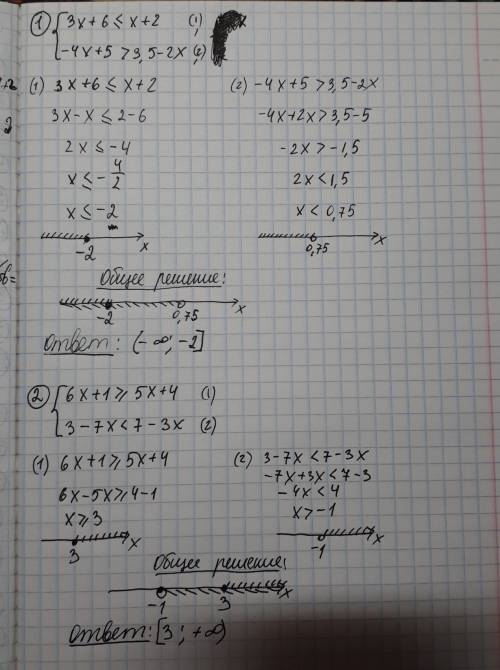 1 { 3x+6 ≤ x+2 (1)
-4x+5 > 3,5-2x (2)
(1) 3x+6 ≤ x+2
3x-x ≤ 2-6
2x ≤ -4
x ≤ -4/2
x ≤ -2
-2 x
(2) -4x+5 > 3,5-2x
-4x+2x > 3,5-5
-2x > -1,5
2x < 1,5
x < 0,75
0,75 x
Общее решение:
-2 0,75 x
Ответ: (-∞; -2]
2 { 6x+1 ≥ 5x+4 (1)
3-7x < 7-3x (2)
(1) 6x+1 ≥ 5x+4
6x-5x ≥ 4-1
x ≥ 3
3 x
(2) 3-7x < 7-3x
-7x+3x < 7-3
-4x < 4
x > -1
-1 x
Общее решение:
-1 3 x
Ответ: [3; +∞)